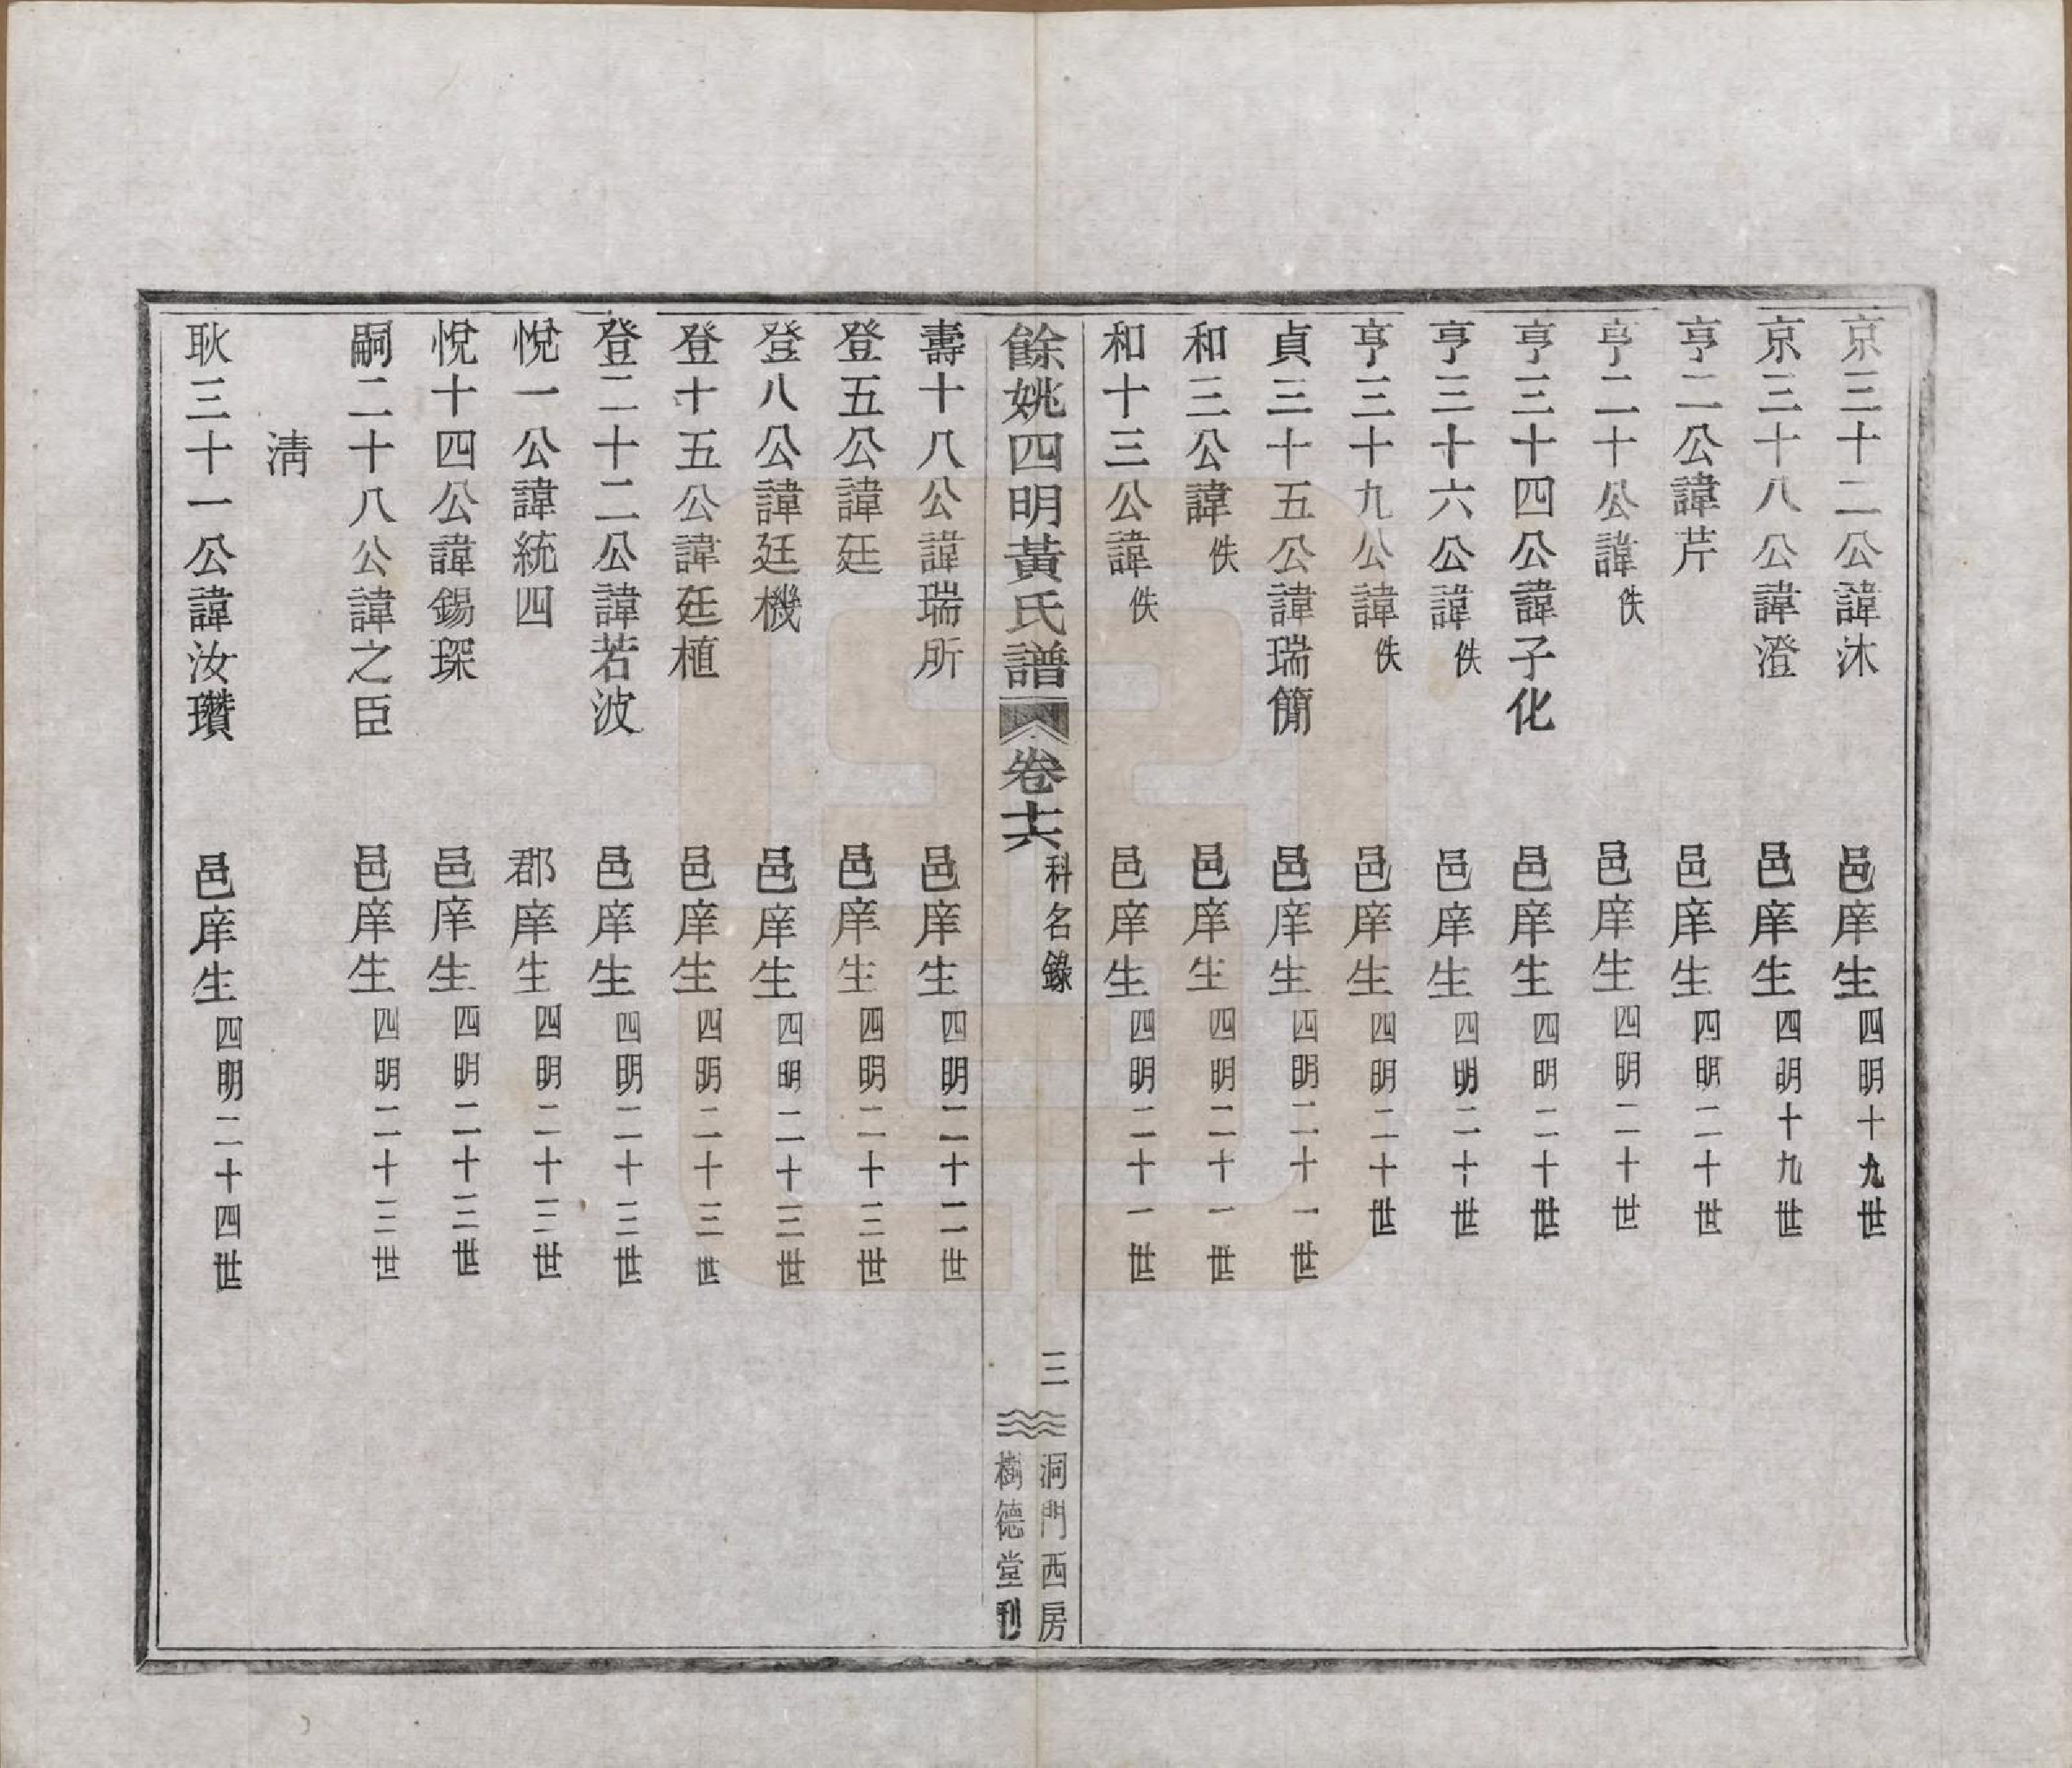 京三十二公諱沐 邑庠生 四明十九世
京三十八公諱澄 邑庠生 四明十九世
亨二公諱芹 邑庠生 四明二十世
亨二十公諱佚 邑庠生 四明二十世
亨三十四公諱子化 邑庠生 四明二十世
亨三十六公諱佚 邑庠生 四明二十世
亨三十九公諱佚 邑庠生 四明二十世
貞三十五公諱瑞簡 邑庠生 四明二十一世
和三公諱佚 邑庠生 四明二十一世
和十三公諱佚 邑庠生 四明二十一世
餘姚四明黃氏譜 卷十六 科名錄 三 洞門西房
樹德堂刊
壽十八公諱瑞所 邑庠生 四明二十二世
登五公諱廷 邑庠生 四明二十三世
登八公諱廷機 邑庠生 四明二十三世
登十五公諱廷植 邑庠生 四明二十三世
登二十二公諱若波 邑庠生 四明二十三世
悅一公諱統四 郡庠生 四明二十三世
悅十四公諱錫琛 邑庠生 四明二十三世
嗣二十八公諱之臣 邑庠生 四明二十三世
清
耿三十一公諱汝瓚 邑庠生 四明二十四世